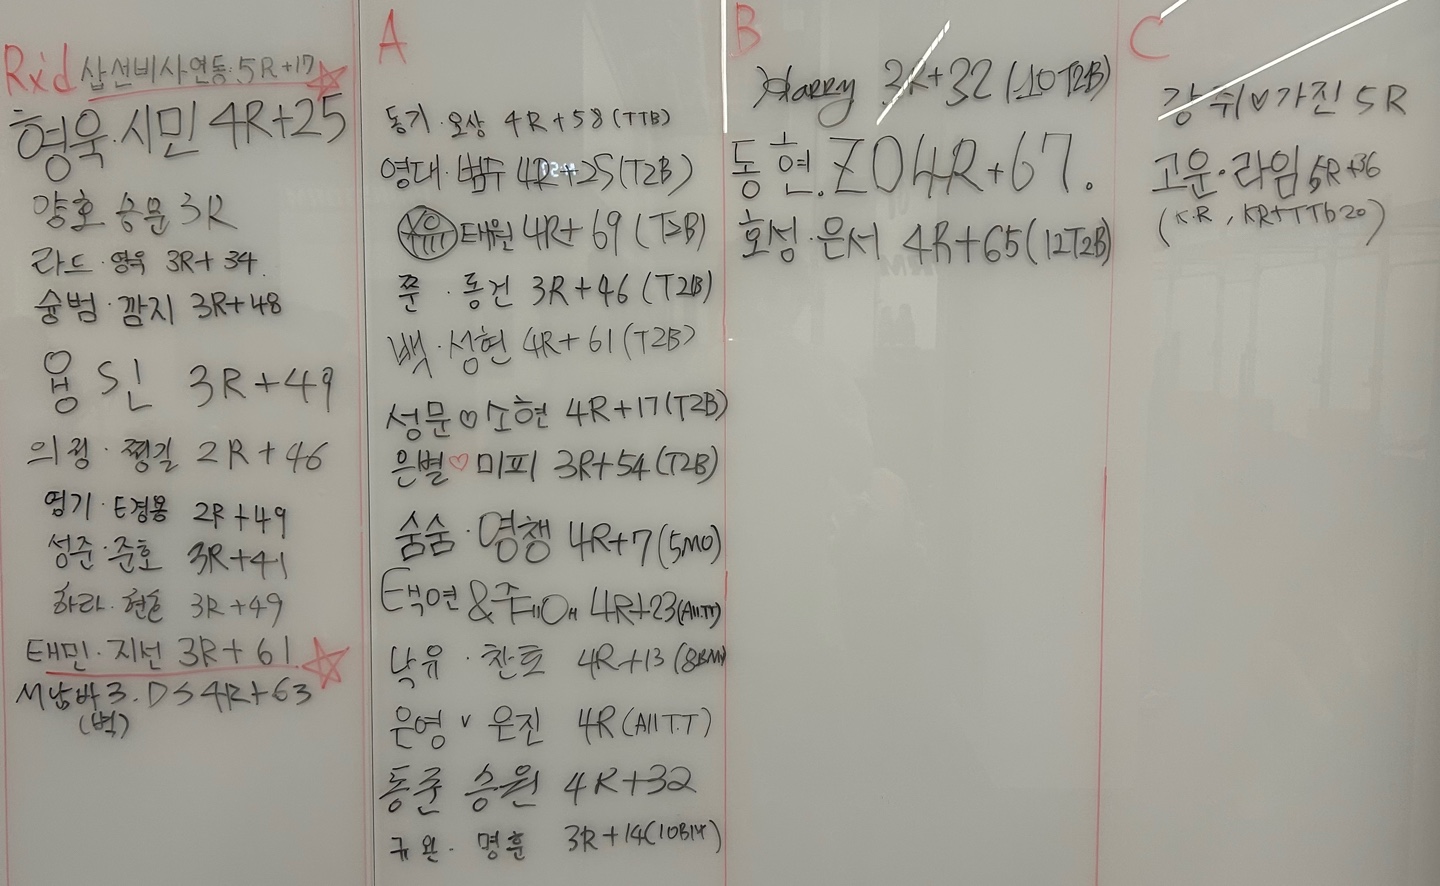 Rx'd 삽선비사연동 5R+17
형욱·시민 4R+25
양호 승문 3R
라드·형욱 3R+34
슝범·깜지 3R+48
용 S신 3R+49
의정·찡길 2R+46
엄기·E경용 2R+49
성준·준호 3R+41
하라·현호 3R+49
태민·지선 3R+61
서남바3.DS 4R+63
(벽)
A
동기·오상 4R+58(TTB)
영대·범수 4R+25(T2B)
유 태원 4R+69(T2B)
쭌·동건 3R+46(T2B)
백·성현 4R+61(T2B)
성문♡소현 4R+17(T2B)
은별♡미피 3R+54(T2B)
숨숨·영챙 4R+7(5MO)
택연& 4R+23(All.TT)
낙유·찬토 4R+13
은영v은진 4R(All T.T)
동준 승원 4R+32
규완·명훈 3R+14
B
Harry 3R+32(10T2B)
동현.ZO 4R+67.
회성·은서 4R+65(12T2B)
C
강쥐♡가진 5R
고운·라임 5R+36
(K.R, KR+TTb20)